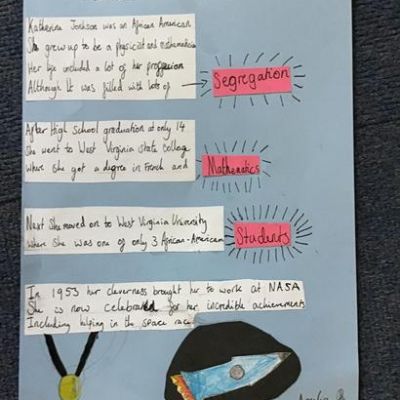 Katherine Jonhson was an African American
She grew up to be a physicist and mathematician
Her life included a lot of her progression
Although It was filled with lots of
Segregation
After High School graduation at only 14
She went to West Virginia state college
Where she got a degree in French and
Mathematics
Next She moved on to West Virginia University
Where she was one of only 3 African-American
Students
In 1953 her cleverness brought her to work at NASA
She is now celebrated for her incredible achievements
Including helping in the space race